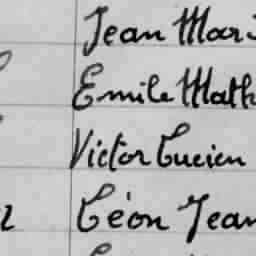 Jean Mari
Emile Math
Victor Lucien
Léon Jean